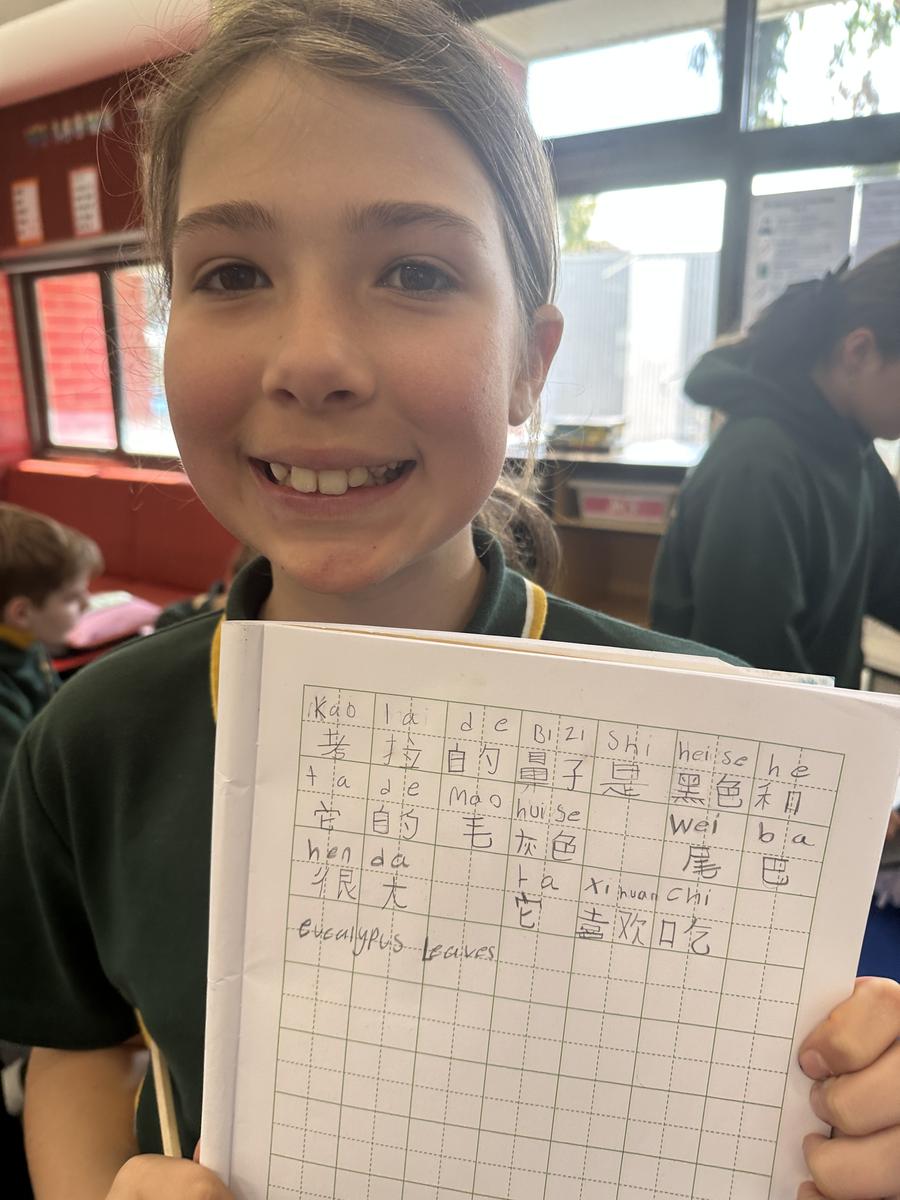 Kao lai de Bi zi Shi hei se he
考拉的鼻子是黑色和
ta de Mao hui se Wei ba
它的毛灰色 尾巴
hen da ta xi huan Chi
很大 它喜欢吃
eucalypus Leaves